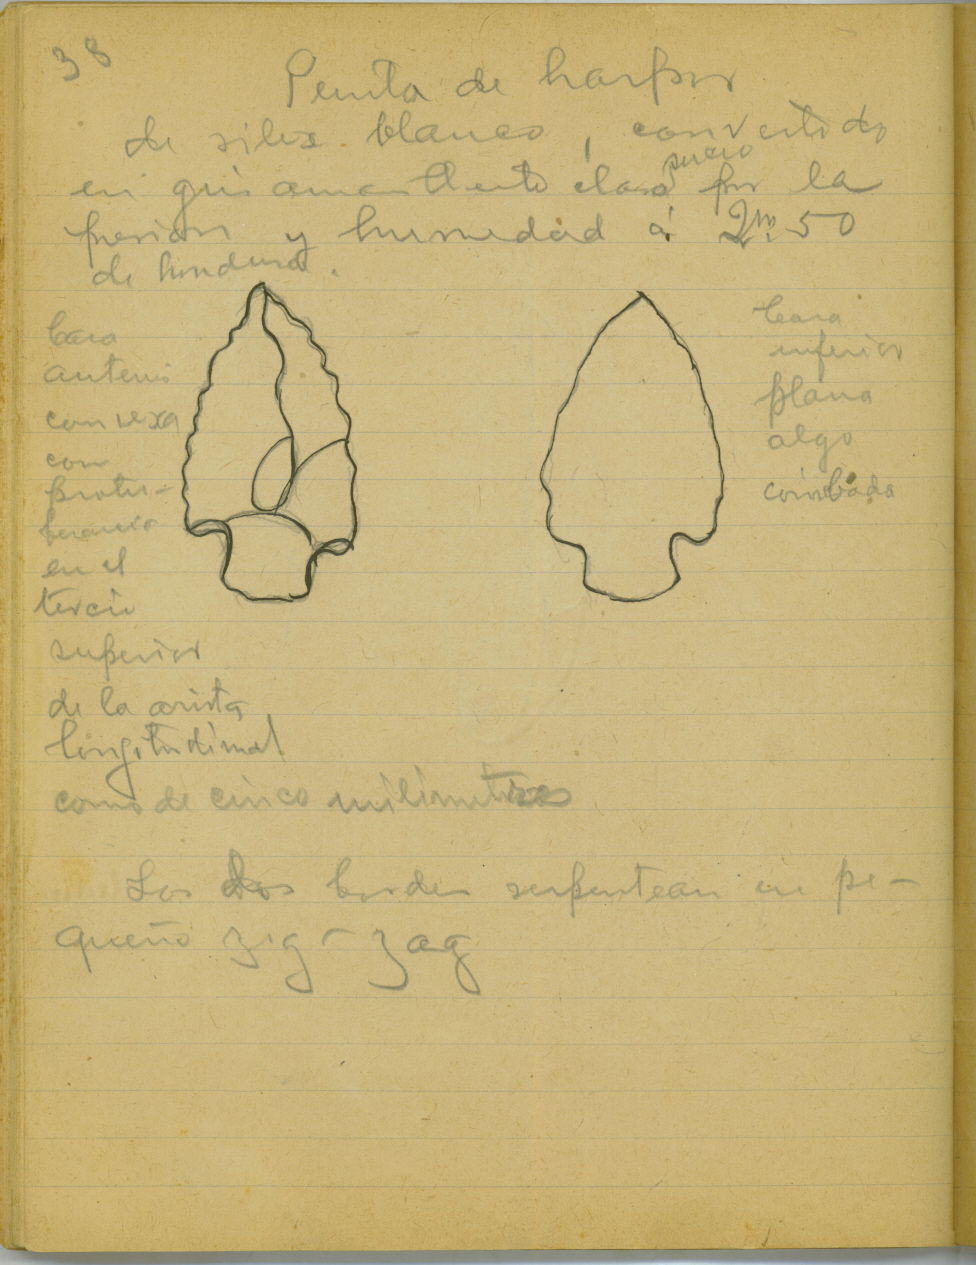 38
Punta de harpon
de silex blanco, convertido
en gris amarillento claro sucio por la
presion y humedad á 2m. 50
de hondura.
Cara
anterior
convexa
con
protu-
berancia
en el
tercio
superior
de la arista
longitudinal
como de cinco milimetros
Cara
inferior
plana
algo
combada
Los dos bordes serpentean en pe-
queño zig-zag